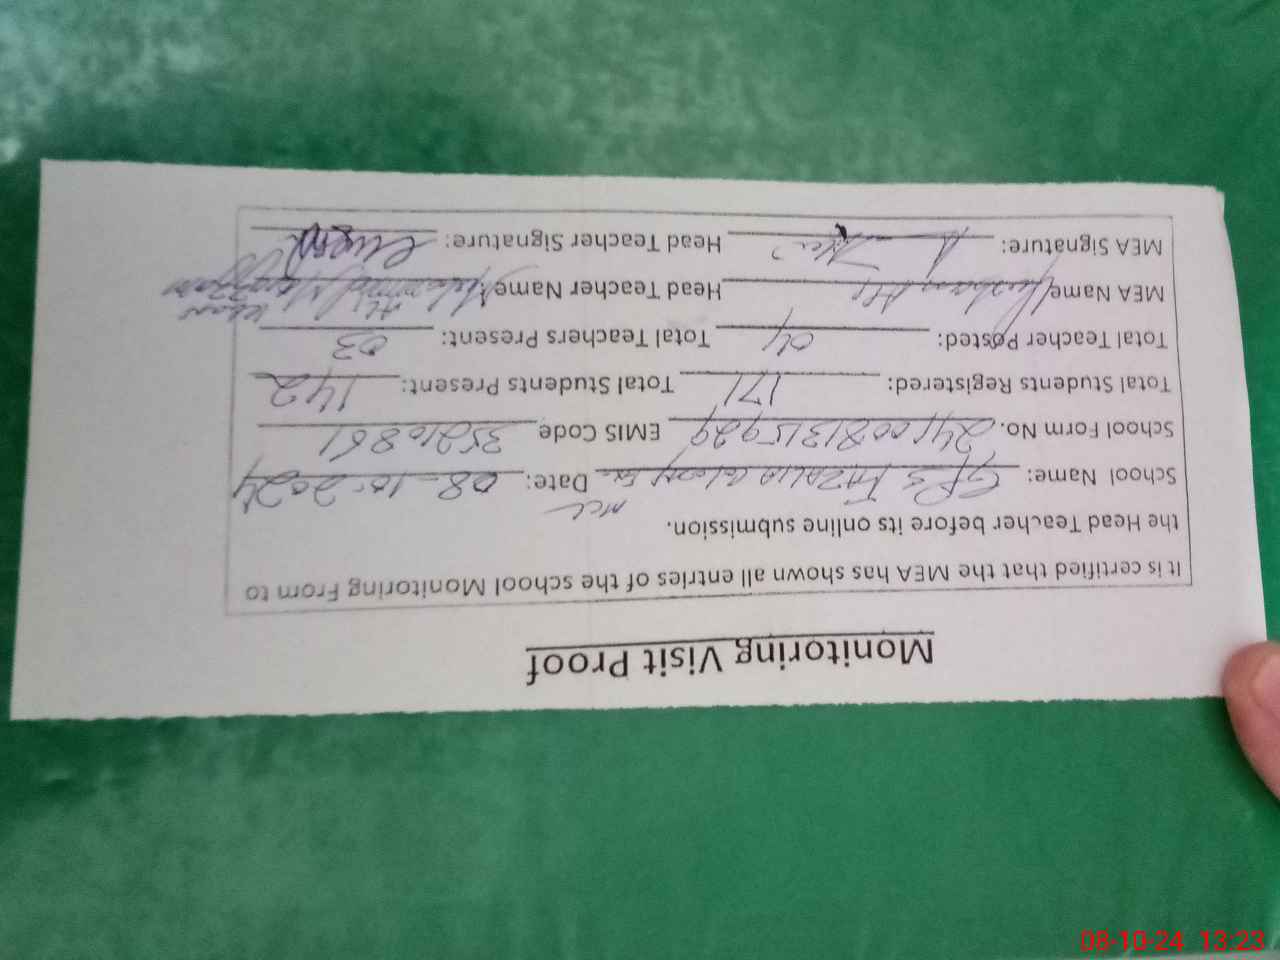 Monitoring Visit Proof
It is certified that the MEA has shown all entries of the school Monitoring From to
the Head Teacher before its online submission.
School Name: GPS FAZALIA Colony MCL Date: 08-10-2024
School Form No. 241008131592 EMIS Code 35210861
Total Students Registered: 171 Total Students Present: 142
Total Teacher Posted: 04 Total Teachers Present: 03
MEA Name Ali Head Teacher Name: Muhammad
MEA Signature: Head Teacher Signature:
08-10-24 13:23